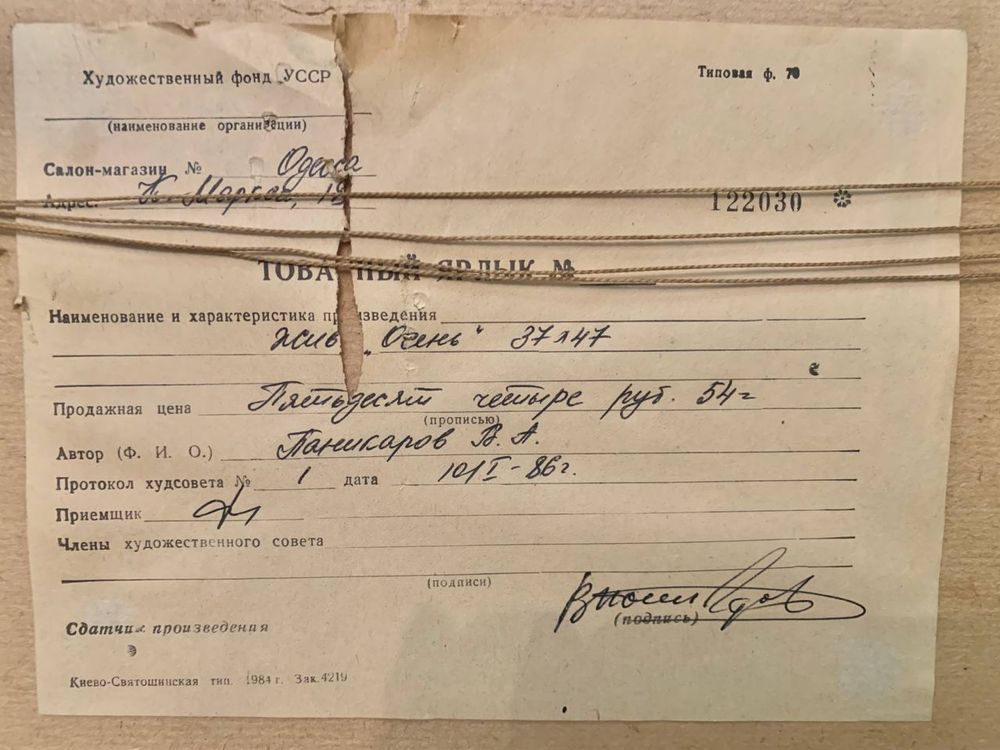 Художественный фонд УССР
Типовая ф. 70
(наименование организации)
Салон-магазин № Одесса
Адрес: К. Маркса, 12
122030
ТОВАРНЫЙ ЯРЛЫК №
Наименование и характеристика произведения
Жив. „Осень" 37х47
Продажная цена Пятьдесят четыре руб. 54
(прописью)
Автор (Ф. И. О.) Паникаров В. А.
Протокол худсовета № 1 дата 10/I-86г.
Приемщик
Члены художественного совета
(подписи)
(подпись)
Сдатчик произведения
Киево-Святошинская тип. 1984 г. Зак. 4219